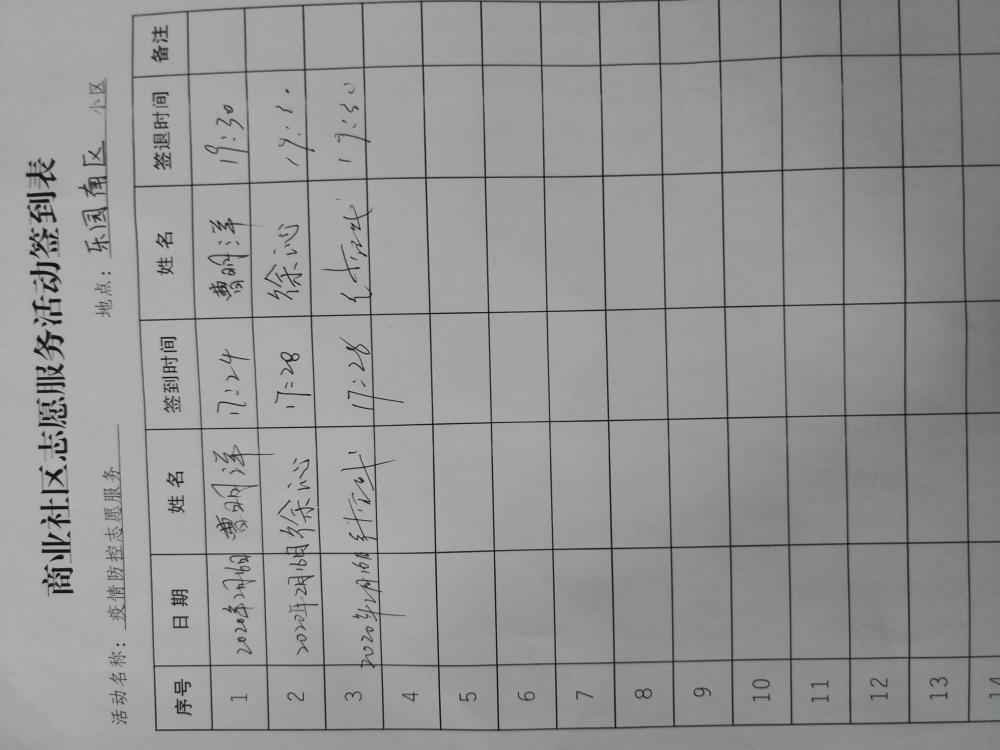 商业社区志愿服务活动签到表
活动名称：疫情防控志愿服务 地点：乐园南区 小区
序号 日期 姓名 签到时间 姓名 签退时间 备注
1 2020年2月16日 曹明洋 17:24 曹明洋 19:30
2 2020年2月16日 徐沁 17:28 徐沁 19:30
3 2020年2月16日 17:28 19:30
4
5
6
7
8
9
10
11
12
13
14